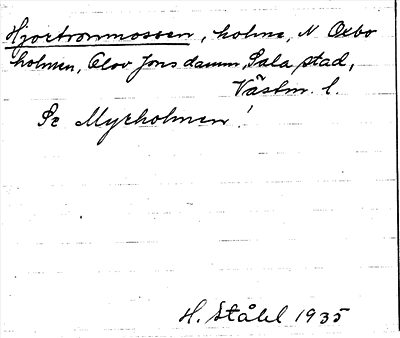 Hjortronmossen, holme, N. Oxbo
holmen, Olov Jons damm, Sala stad,
Västm. l.
Se Myrholmen!
H. Ståhl 1935